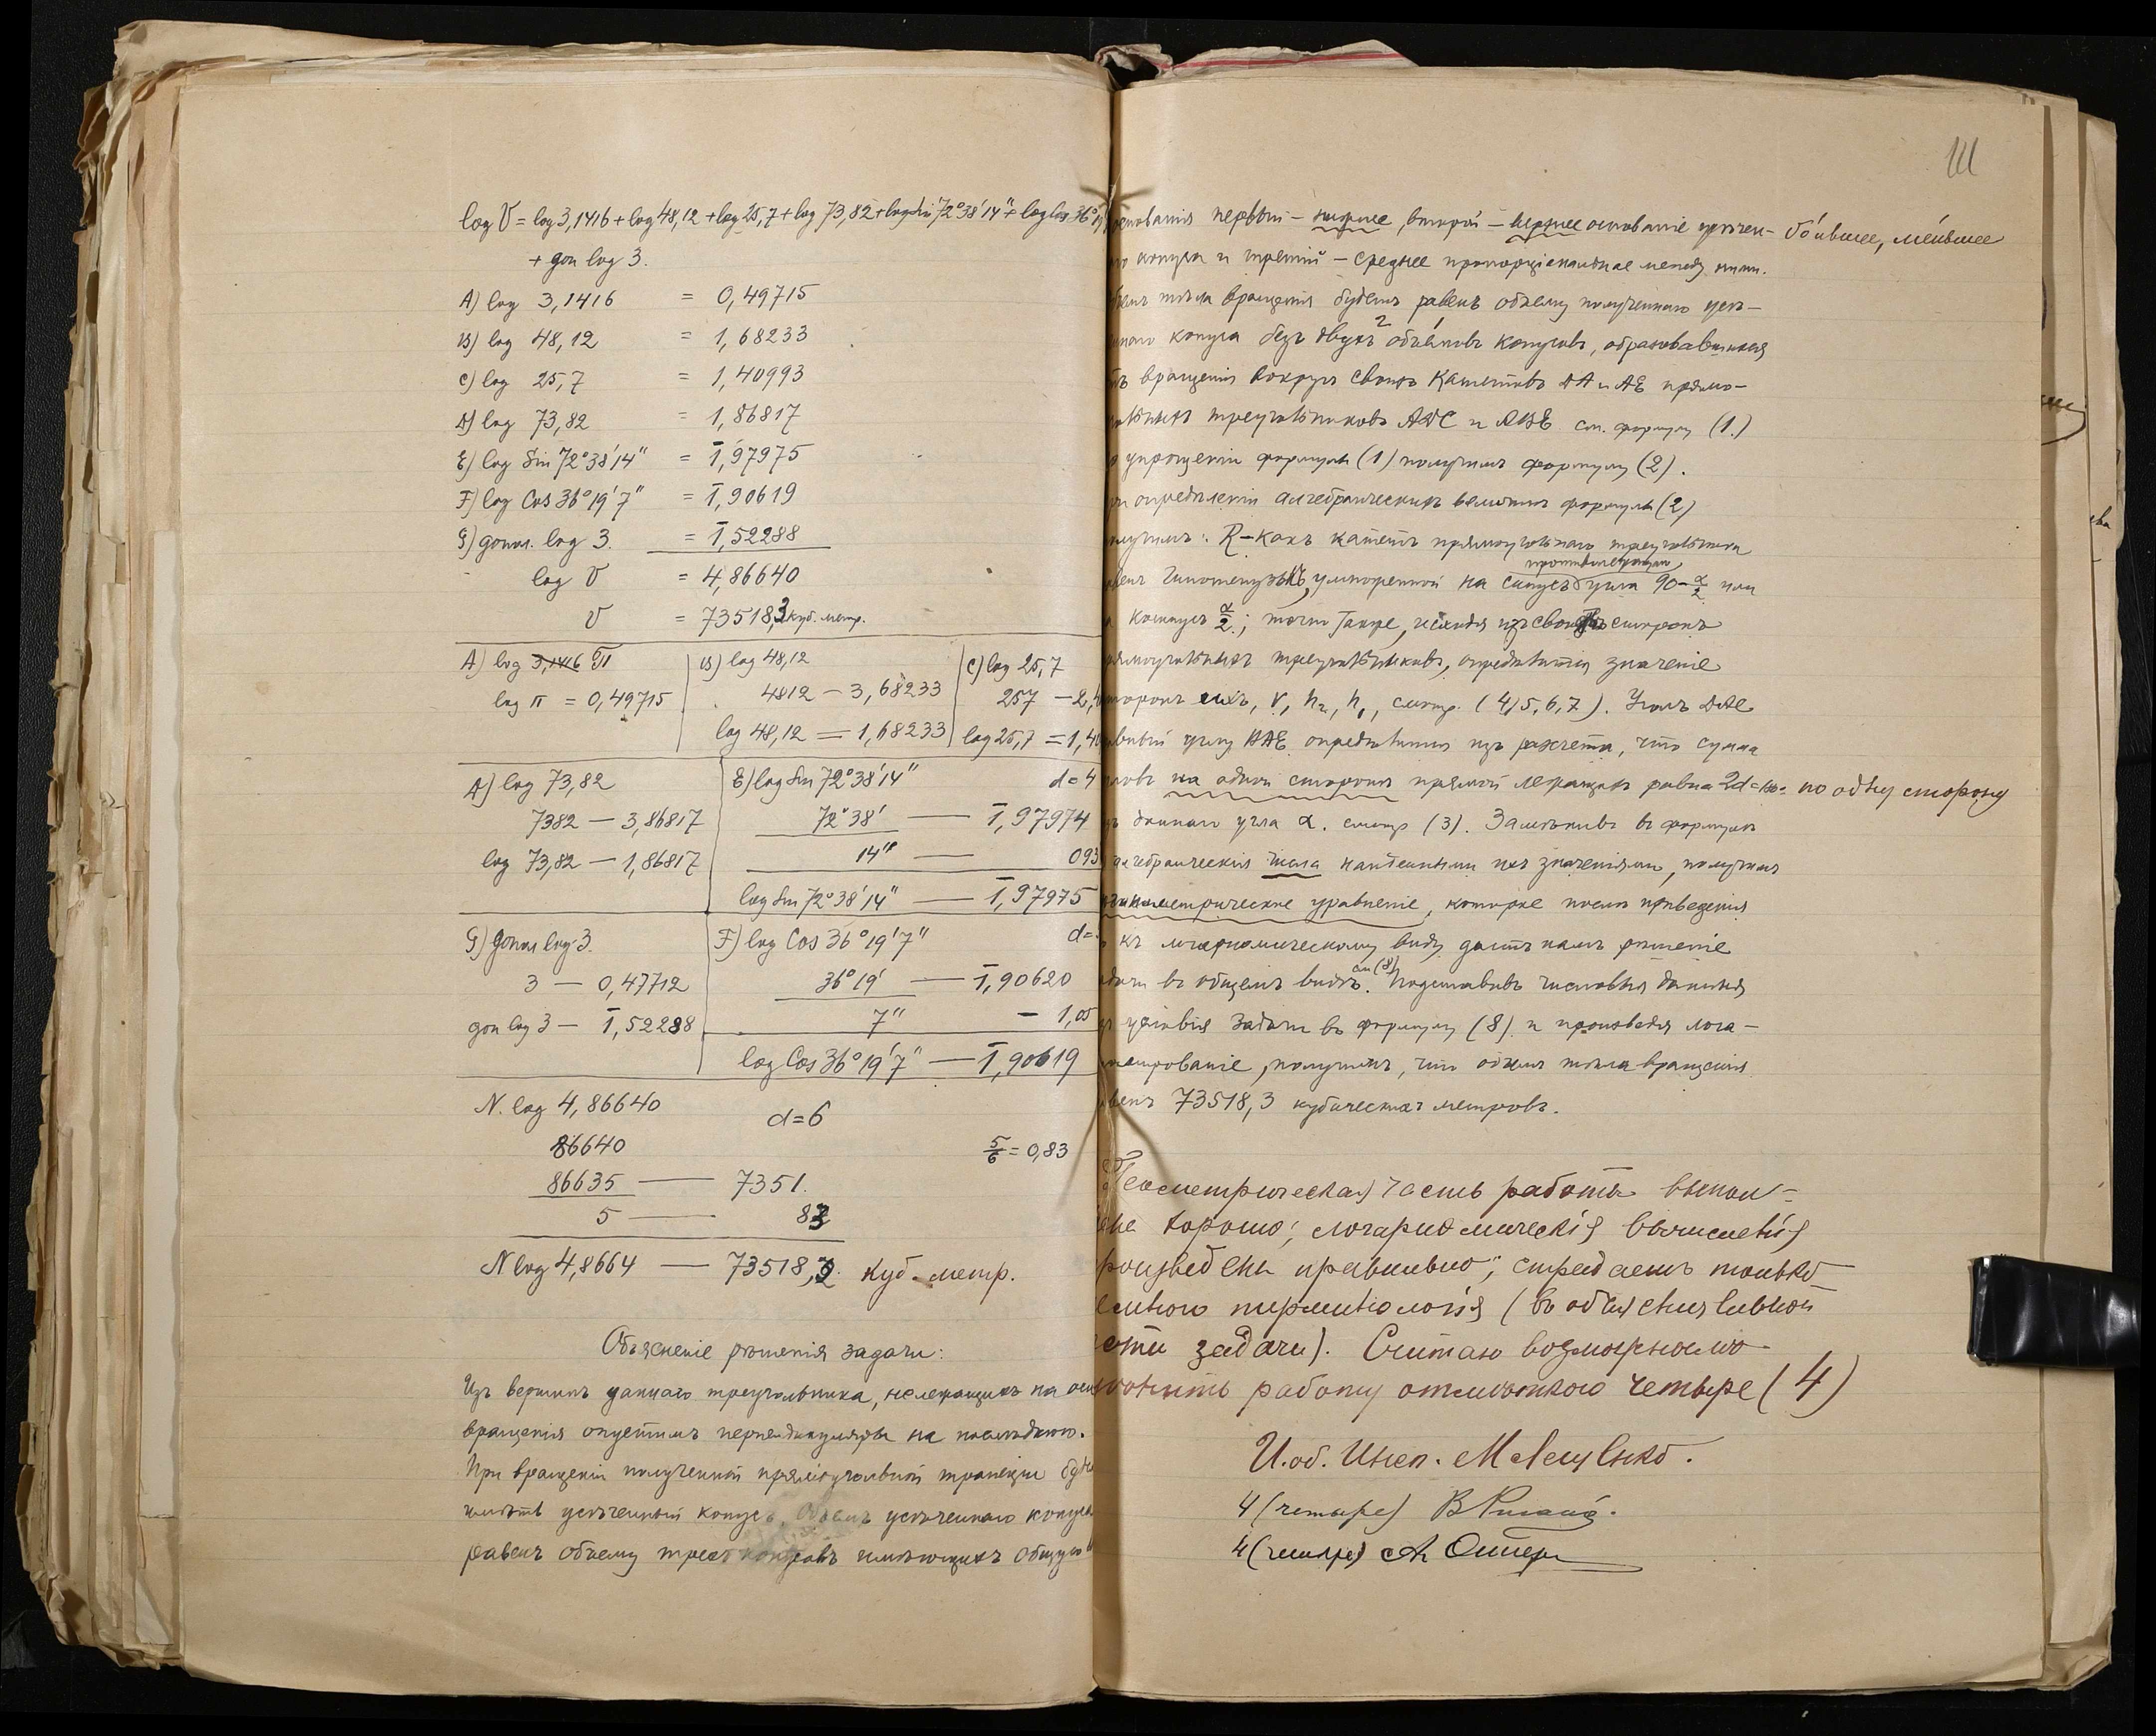 log V = log 3,1416 + log 48,12 + log 25,7 + log 73,82 + log sin 72°38′14″ + log Cos 36°19′
+ доп log 3.
A) log 3,1416 = 0,49715
B) log 48,12 = 1,68233
C) log 25,7 = 1,40993
D) log 73,82 = 1,86817
E) log Sin 72°38′14″ = 1̅,97975
F) log Cos 36°19′7″ = 1̅,90619
G) допол. log 3. = 1̅,52288
log V = 4,86640
V = 73518,3 куб. метр.
A) log 3,1416 π
log π = 0,49715
B) log 48,12
4812 — 3,68233
log 48,12 = 1,68233
C) log 25,7
257 — 2,4
log 25,7 = 1,40
D) log 73,82
7382 — 3,86817
log 73,82 — 1,86817
E) log Sin 72°38′14″ d=4
72°38′ — 1̅,97974
14″ — 093
log Sin 72°38′14″ — 1̅,97975
G) допол log 3.
3 — 0,47712
доп log 3 — 1̅,52288
F) log Cos 36°19′7″ d=
36°19′ — 1̅,90620
7″ — 1,05
log Cos 36°19′7″ — 1̅,90619
N. log 4,86640 d=6
86640 5/6 = 0,83
86635 — 7351.
5 — 83
N log 4,8664 — 73518,3 куб. метр.
Объясненіе рѣшенія задачи:
Изъ вершинъ даннаго треугольника, не лежащихъ на оси
вращенія опустимъ перпендикуляры на послѣднюю.
При вращеніи полученной прямоугольной трапеціи
имѣть усѣченный конусъ. Объемъ усѣченнаго конуса
равенъ объему трехъ конусовъ имѣющихъ общую
111
основанія первый — нижнее, второй — верхнее основаніе усѣчен- бо́льшее, ме́ньшее
конуса и третій — среднее пропорціональное между ними.
тѣла вращенія будетъ равенъ объему полученнаго усѣ-
конуса безъ двухъ 2 объемовъ конусовъ, образовавшихся
вращенія вокругъ своихъ катетовъ DA и AE прямо-
треугольниковъ ADC и ABE см. формулу (1.)
упрощеніи формулы (1) получимъ формулу (2).
опредѣленіи алгебраическихъ величинъ формулы (2)
R — какъ катетъ прямоугольнаго треугольника
противолежащаго
гипотенузѣ, умноженной на синусъ угла 90 - α/2 или
косинусъ α/2; точно также, исходя изъ сторонъ
треугольниковъ, опредѣлится значеніе
r, h₂, h₁, смотр. (4,5,6,7). Уголъ DAC
углу BAE опредѣлится изъ разчета, что сумма
на одной сторонѣ прямой лежащихъ равна 2d = 180° по одну сторону
даннаго угла α. смотр (3). Замѣнивъ въ формулѣ
алгебраическія числа найденными ихъ значеніями, получимъ
уравненіе, которое послѣ приведенія
къ логариѳмическому виду дастъ намъ рѣшеніе
въ общемъ видѣ. см (8) Подставивъ числовыя данныя
условія задачи въ формулу (8) и произведя лога-
получимъ, что объемъ тѣла вращенія
73518,3 кубическихъ метровъ.
Геометрическая часть работы выпол-
хорошо; логариѳмическія вычисленія
произведены правильно; страдаетъ только
терминологія (въ объяснительной
задачи). Считаю возможнымъ
работу отмѣткою четыре (4)
И. об. Инсп.
4 (четыре)
4 (четыре)